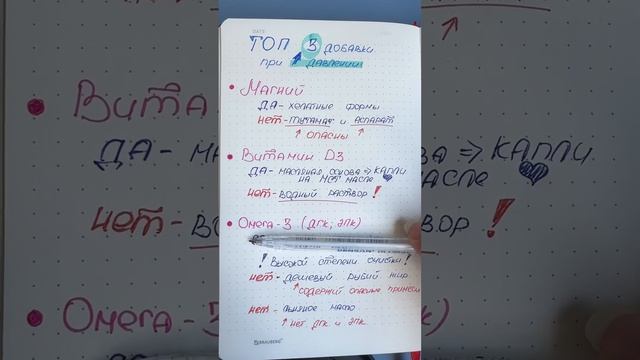 ТОП 3 ДОБАВКИ
при ↑ ДАВЛЕНИИ
• МАГНИЙ
ДА - ХЕЛАТНЫЕ ФОРМЫ
НЕТ - ГЛУТАМАТ и АСПАРТАТ
↑ ОПАСНЫ ↑
• ВИТАМИН D3
ДА - МАСЛЯНАЯ ОСНОВА ⇒ КАПЛИ
НА МСТ МАСЛЕ
НЕТ - ВОДНЫЙ РАСТВОР !
• ОМЕГА-3 (ДГК; ЭПК)
! ВЫСОКОЙ СТЕПЕНИ ОЧИСТКИ !
НЕТ - ДЕШЕВЫЙ РЫБИЙ ЖИР
↑ СОДЕРЖИТ ОПАСНЫЕ ПРИМЕСИ
НЕТ - ЛЬНЯНОЕ МАСЛО
↑ НЕТ ДГК и ЭПК
BRAUBERG